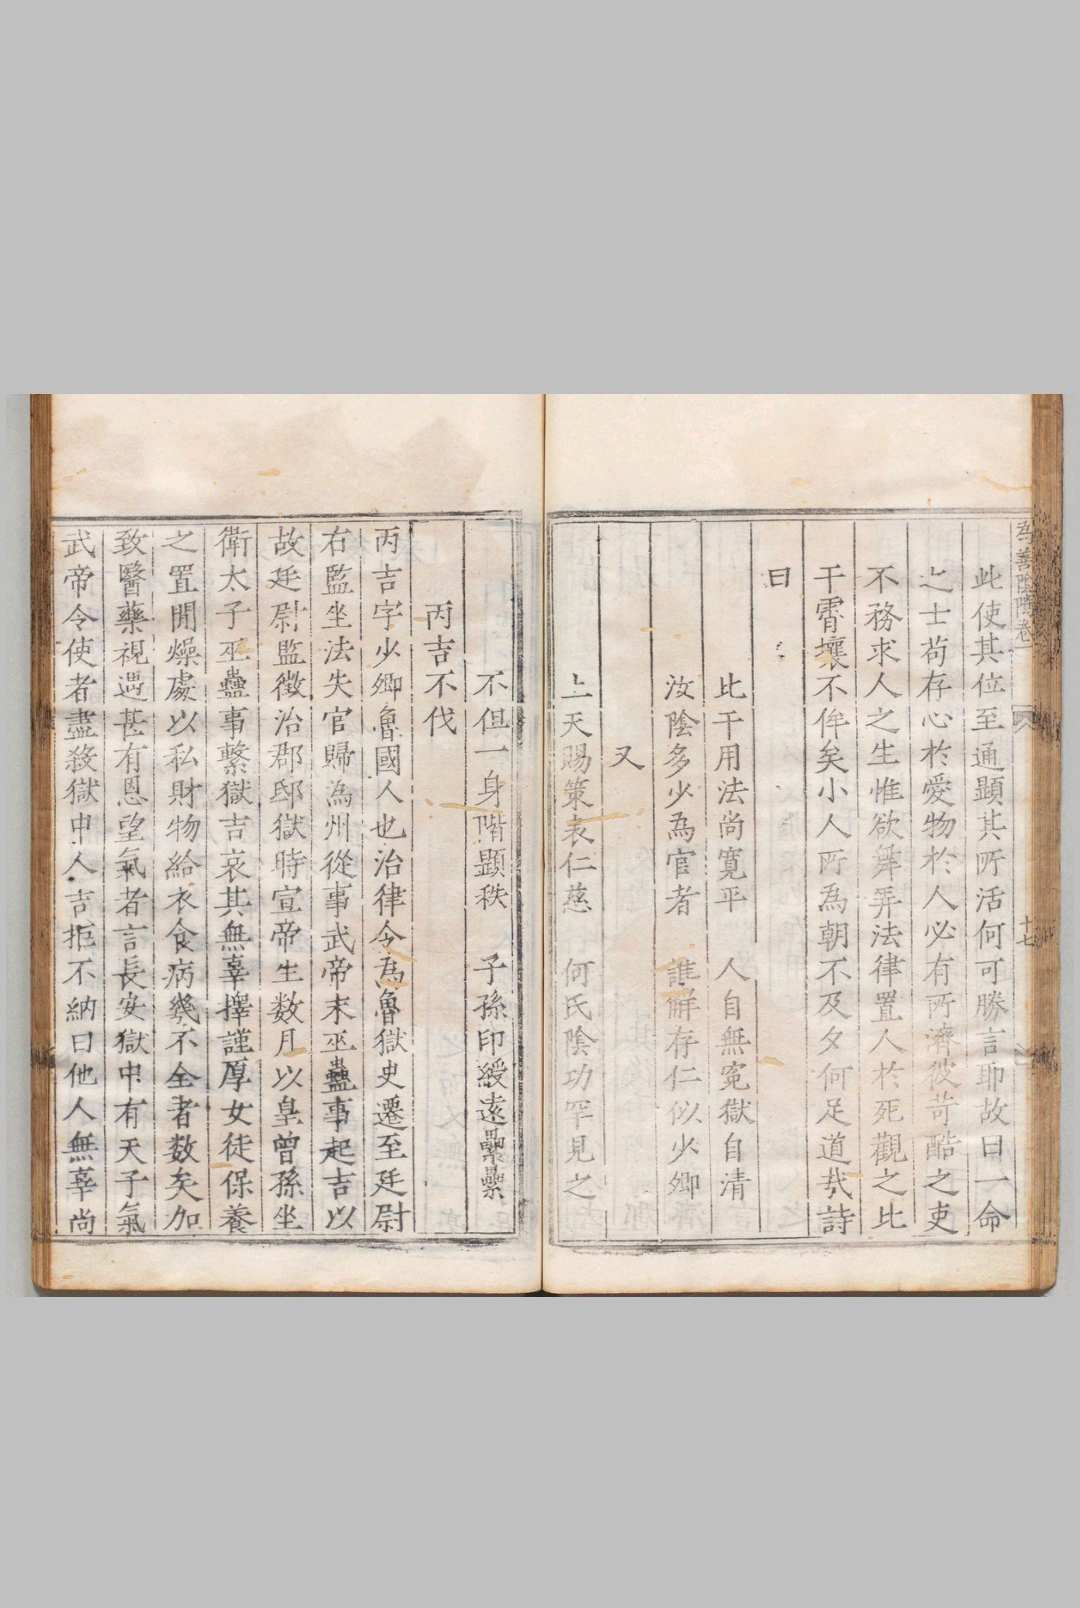 為善陰隲卷一
十七
此使其位至通顯其所活何可勝言耶故曰一命
之士苟存心於愛物於人必有所濟彼苛酷之吏
不務求人之生惟欲舞弄法律置人於死觀之比
干霄壤不侔矣小人所為朝不及夕何足道哉詩
曰
比干用法尚寬平 人自無冤獄自清
汝陰多少為官者 誰解存仁似少卿
又
上天賜策表仁慈 何氏陰功罕見之
不但一身階顯秩 子孫印綬遠纍纍
丙吉不伐
丙吉字少卿魯國人也治律令為魯獄史遷至廷尉
右監坐法失官歸為州從事武帝末巫蠱事起吉以
故廷尉監徵治郡邸獄時宣帝生數月以皇曾孫坐
衛太子巫蠱事繫獄吉哀其無辜擇謹厚女徒保養
之置閒燥處以私財物給衣食病幾不全者數矣加
致醫藥視遇甚有恩望氣者言長安獄中有天子氣
武帝令使者盡殺獄中人吉拒不納曰他人無辜尚